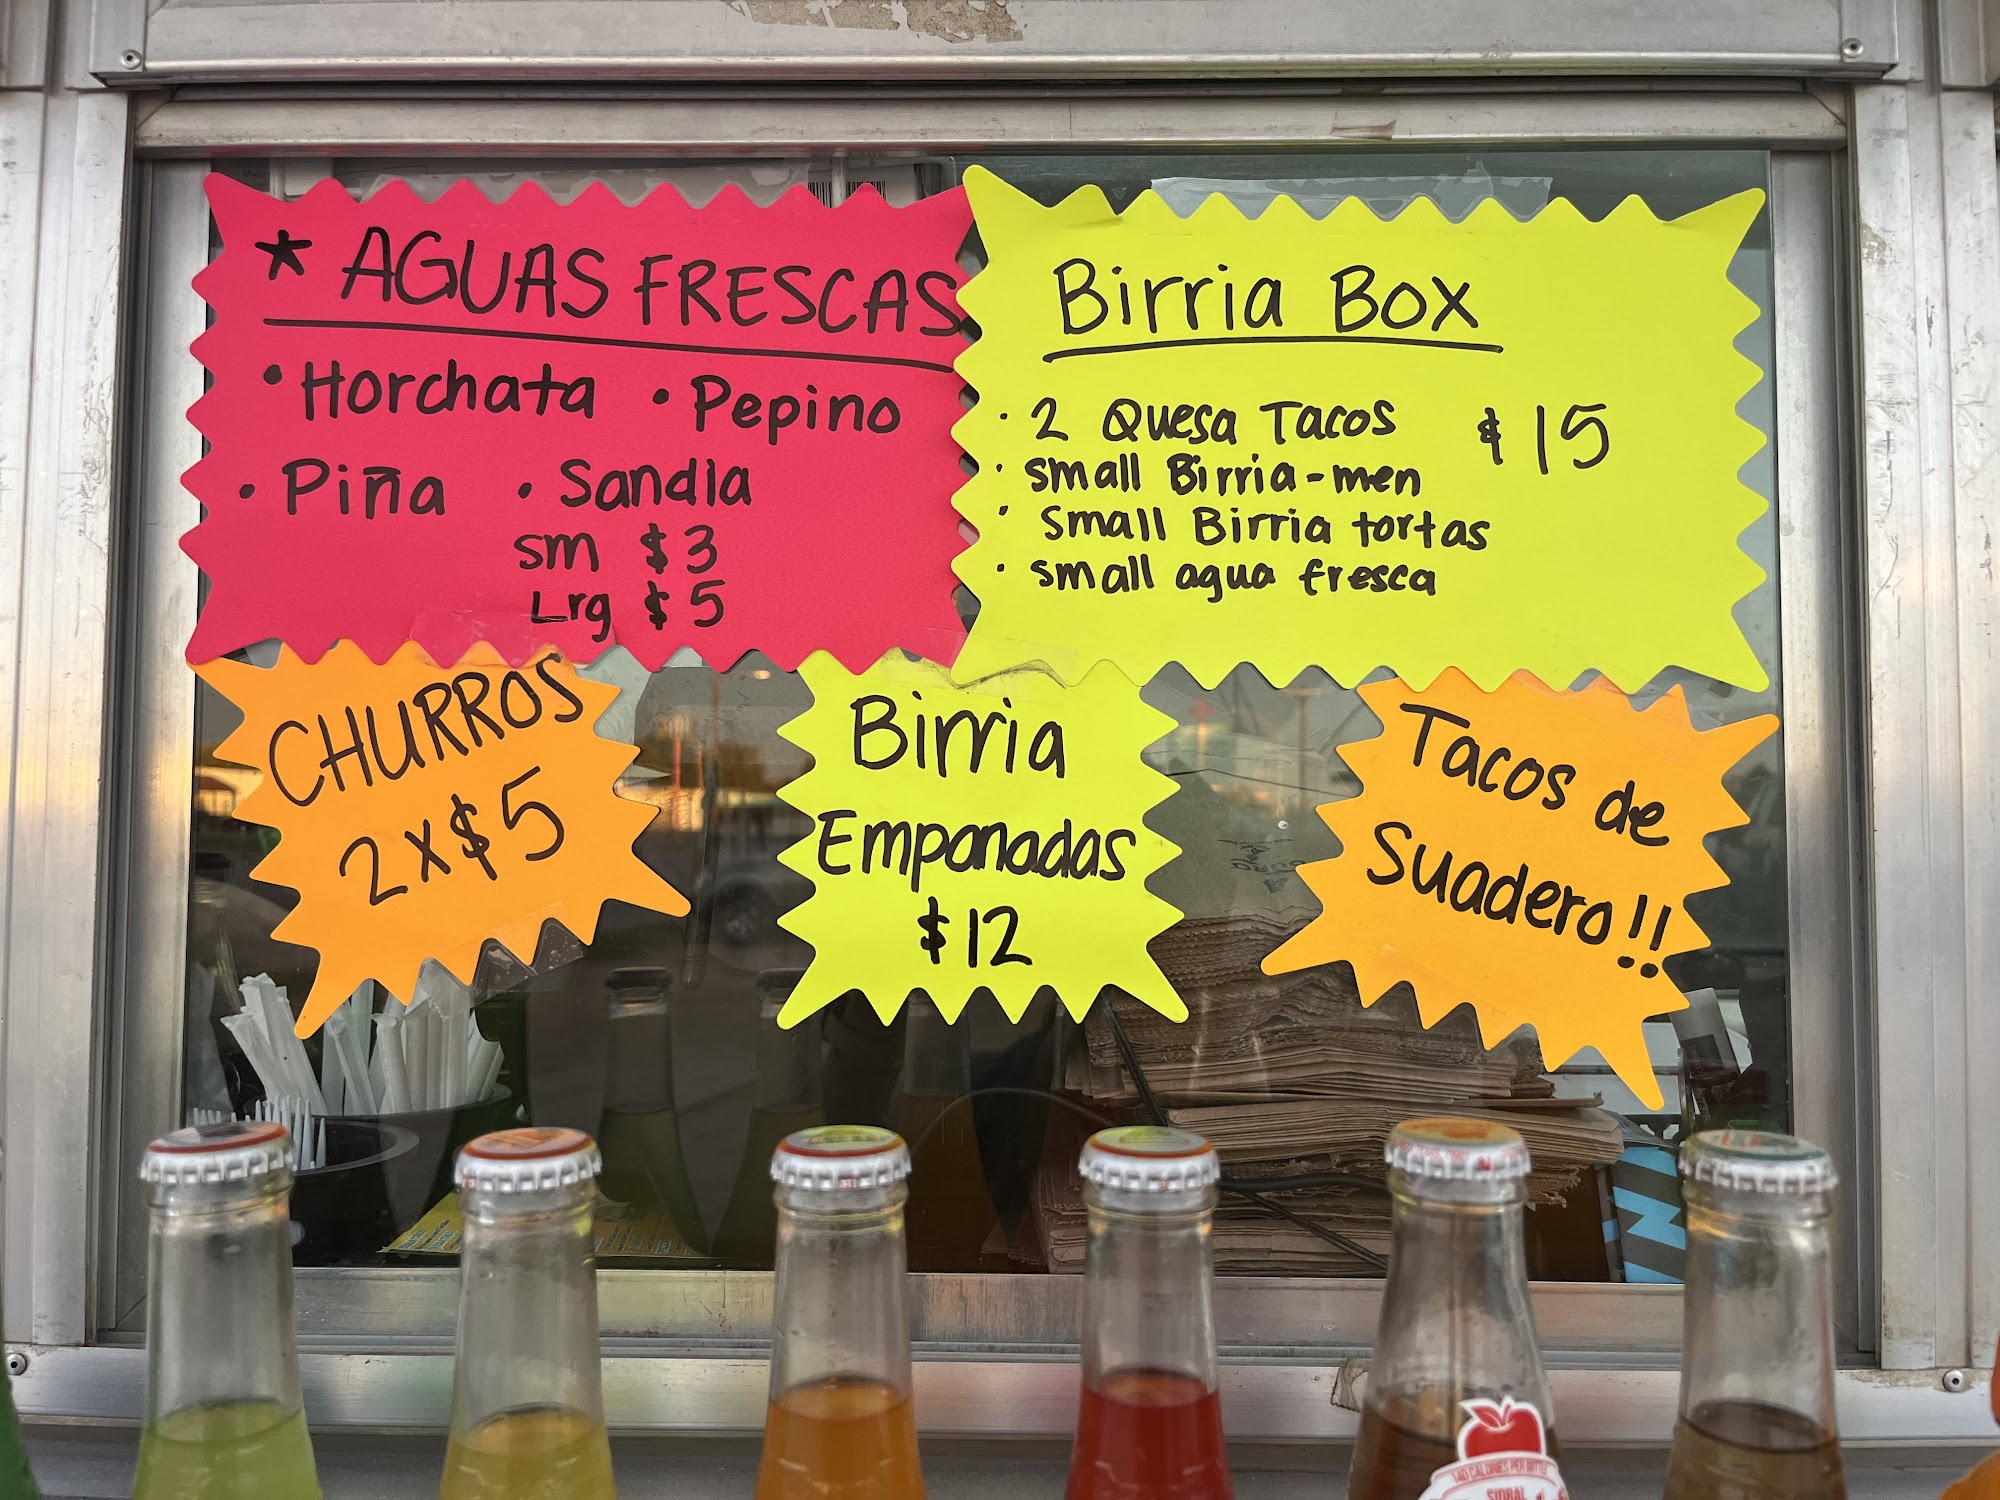 ★ AGUAS FRESCAS
• Horchata • Pepino
• Piña • Sandia
sm $3
Lrg $5
Birria Box
• 2 Quesa Tacos $15
• small Birria-men
• small Birria tortas
• small agua fresca
CHURROS
2x$5
Birria
Empanadas
$12
Tacos de
Suadero!!
140 CALORIES PER BOTTLE
SIDRAL